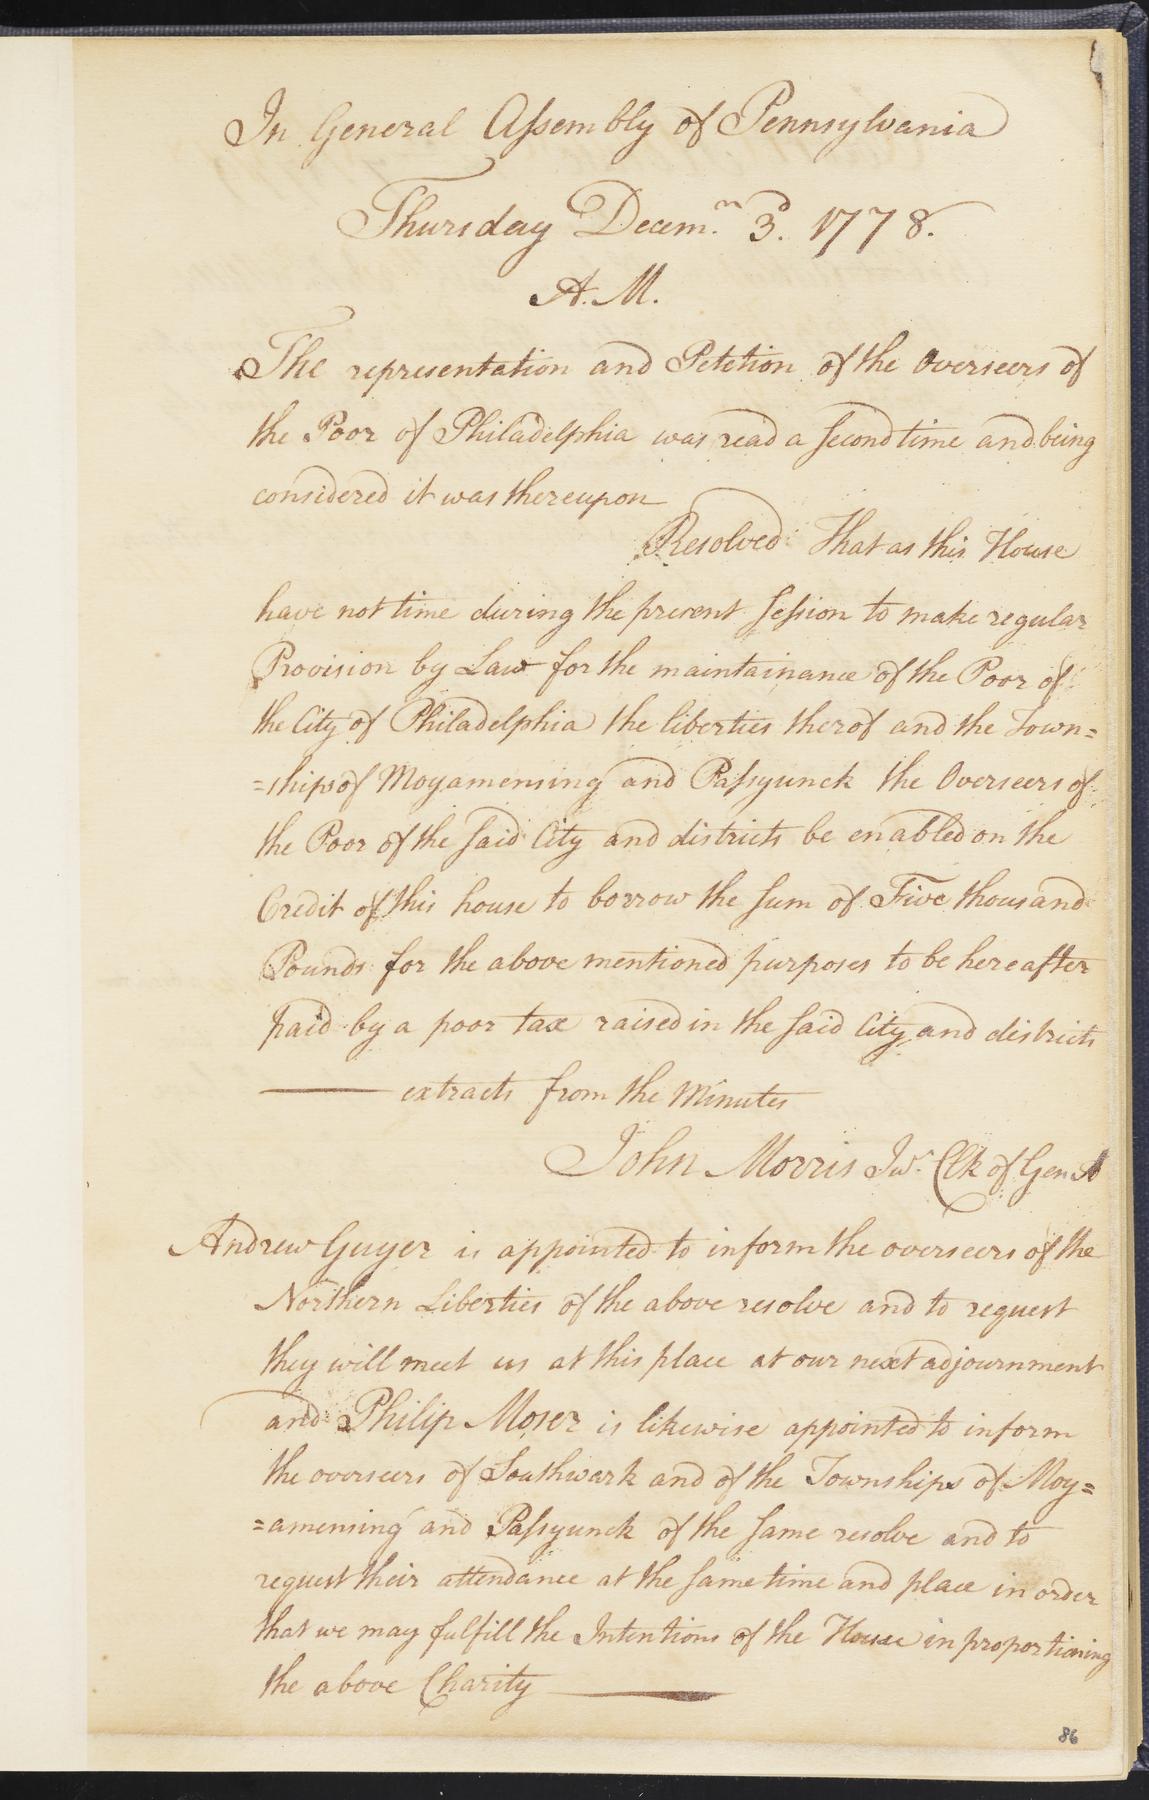 In General Assembly of Pennsylvania
Thursday Decem.r 3d. 1778.
A. M.
The representation and Petetion of the Overseers of
the Poor of Philadelphia was read a second time and being
considered it was thereupon
Resolved That as this House
have not time during the present Session to make regular
Provision by Law for the maintainance of the Poor of
the City of Philadelphia the liberties therof and the Town=
=ships of Moyamensing and Passyunck the Overseers of
the Poor of the said City and districts be enabled on the
Credit of this house to borrow the sum of Five thousand
Pounds for the above mentioned purposes to be hereafter
paid by a poor tax raised in the said City and districts
extracts from the Minutes
John Morris Jur. Clk of Gen A
Andrew Guyer is appointed to inform the overseers of the
Northern Liberties of the above resolve and to request
they will meet us at this place at our next adjournment
and Philip Moser is likewise appointed to inform
the overseers of Southwark and of the Townships of Moy=
=amensing and Passyunck of the same resolve and to
request their attendance at the same time and place in order
that we may fulfill the Intentions of the House in proportioning
the above Charity
86